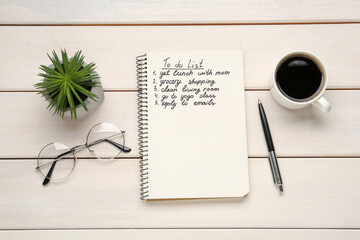 To do List
1. get lunch with mom
2. grocery shopping
3. clean living room
4. go to yoga class
5. reply to emails